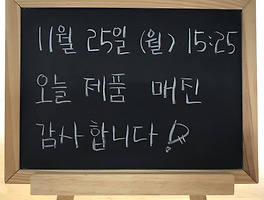 11월 25일 (월) 15:25
오늘 제품 매진
감사합니다!